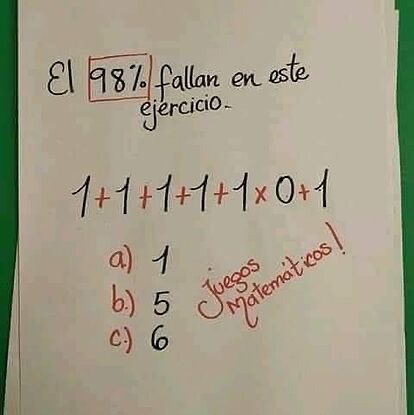 El 98% fallan en este
ejercicio.
1+1+1+1+1x0+1
a) 1
b.) 5
c.) 6
Juegos
Matemáticos!